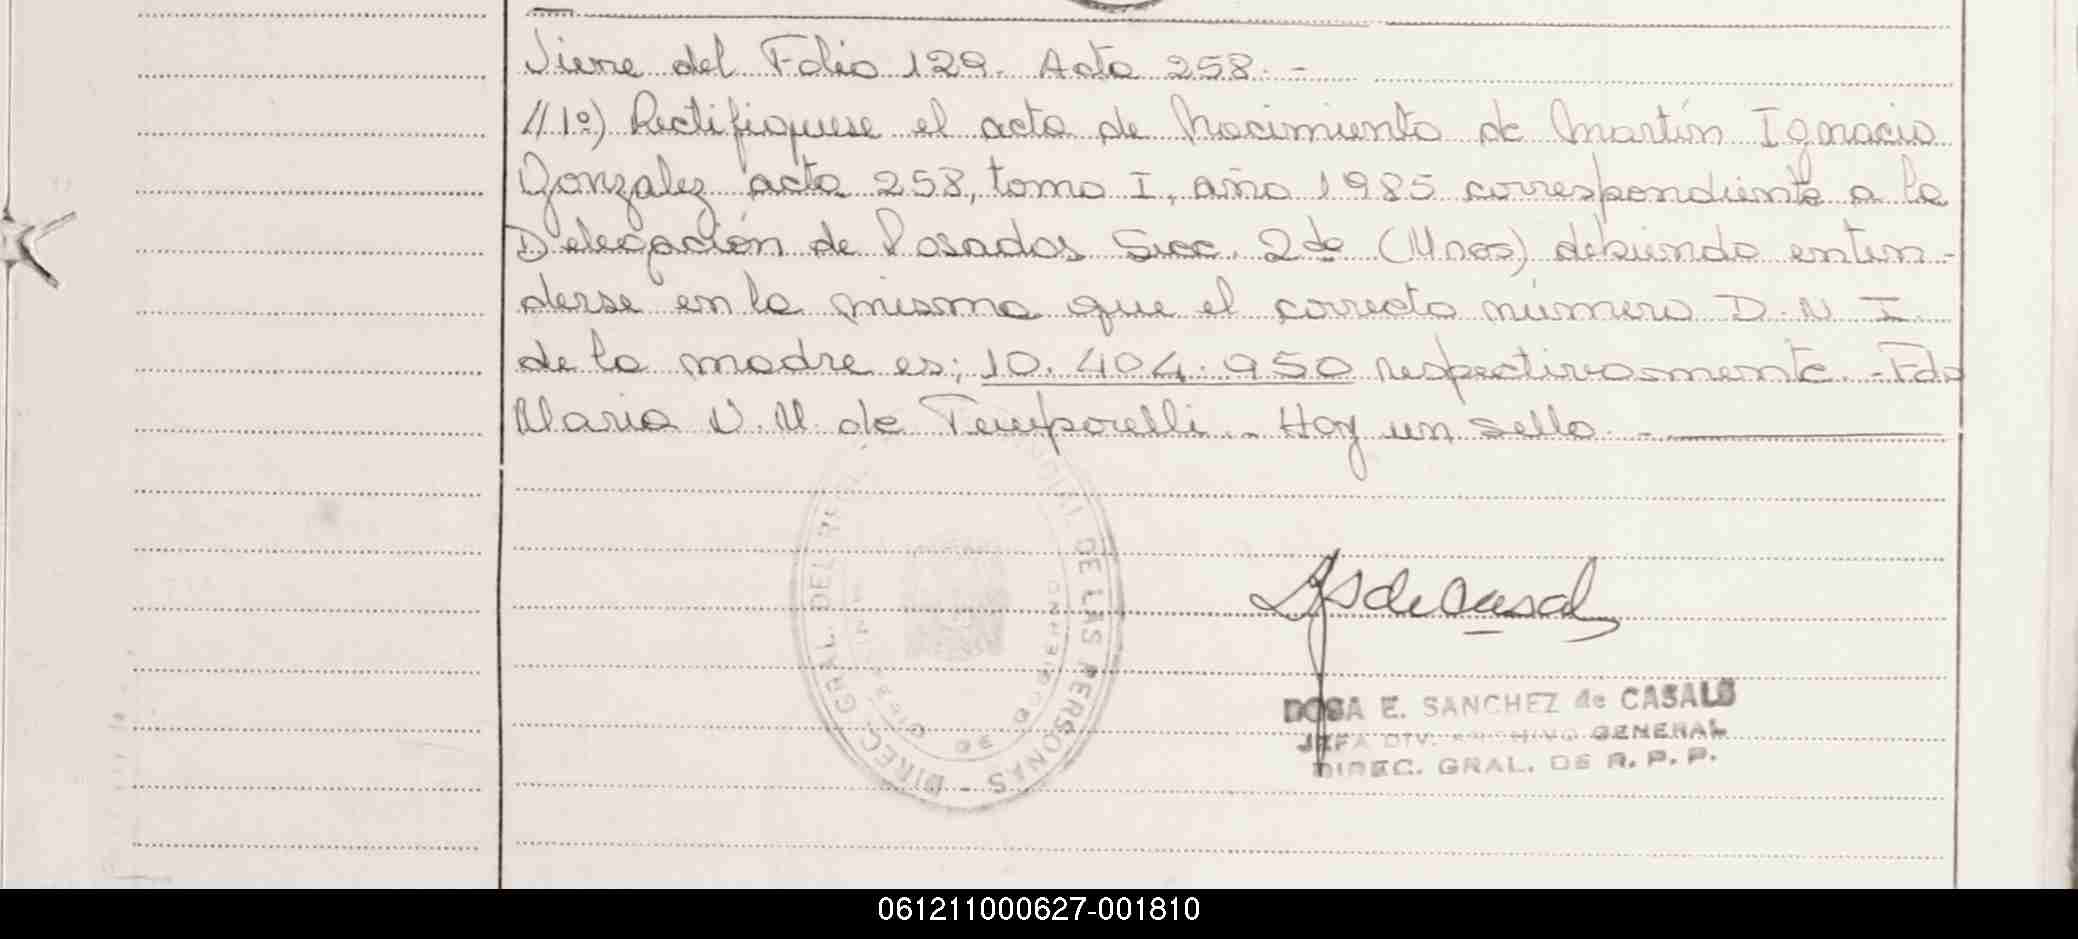 Viene del Folio 129. Acta 258. -
//1º) Rectifiquese el acta de Nacimiento de Martín Ignacio
Gonzalez acta 258, tomo I, año 1985 correspondiente a la
Delegación de Posadas Secc. 2da (Mnes) debiendo enten-
derse en la misma que el correcto número D. N I.
de la madre es; 10.404.950 respectivamente. - Fdo
Maria N. M. de Temporelli. - Hay un sello. -
DIREC. GRAL. DEL DE LAS PERSONAS -
E. SANCHEZ de CASALS
JEFA DIV. ARCHIVO GENERAL
DIREC. GRAL. DE R. P. P.
061211000627-001810